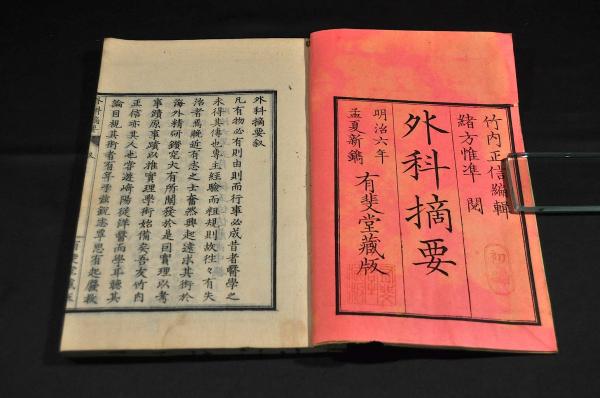 竹内正信編輯
緒方惟準 閲
外科摘要
明治六年
孟夏新鐫
有斐堂藏版
初
外科摘要叙
凡有物必有則由則而行事必成昔者醫學之
未得其傳也專主經驗而粗規則故往々有失
治者焉輓近有志之士奮然興起遠求其術於
海外精研鑽究大有所闡發於是因實理以考
事蹟原事蹟以推實理學術始備矣吾友竹内
正信亦其人也嘗遊崎陽従洋醫而學耳聽其
論目視其術者有年學
外科摘要 叙